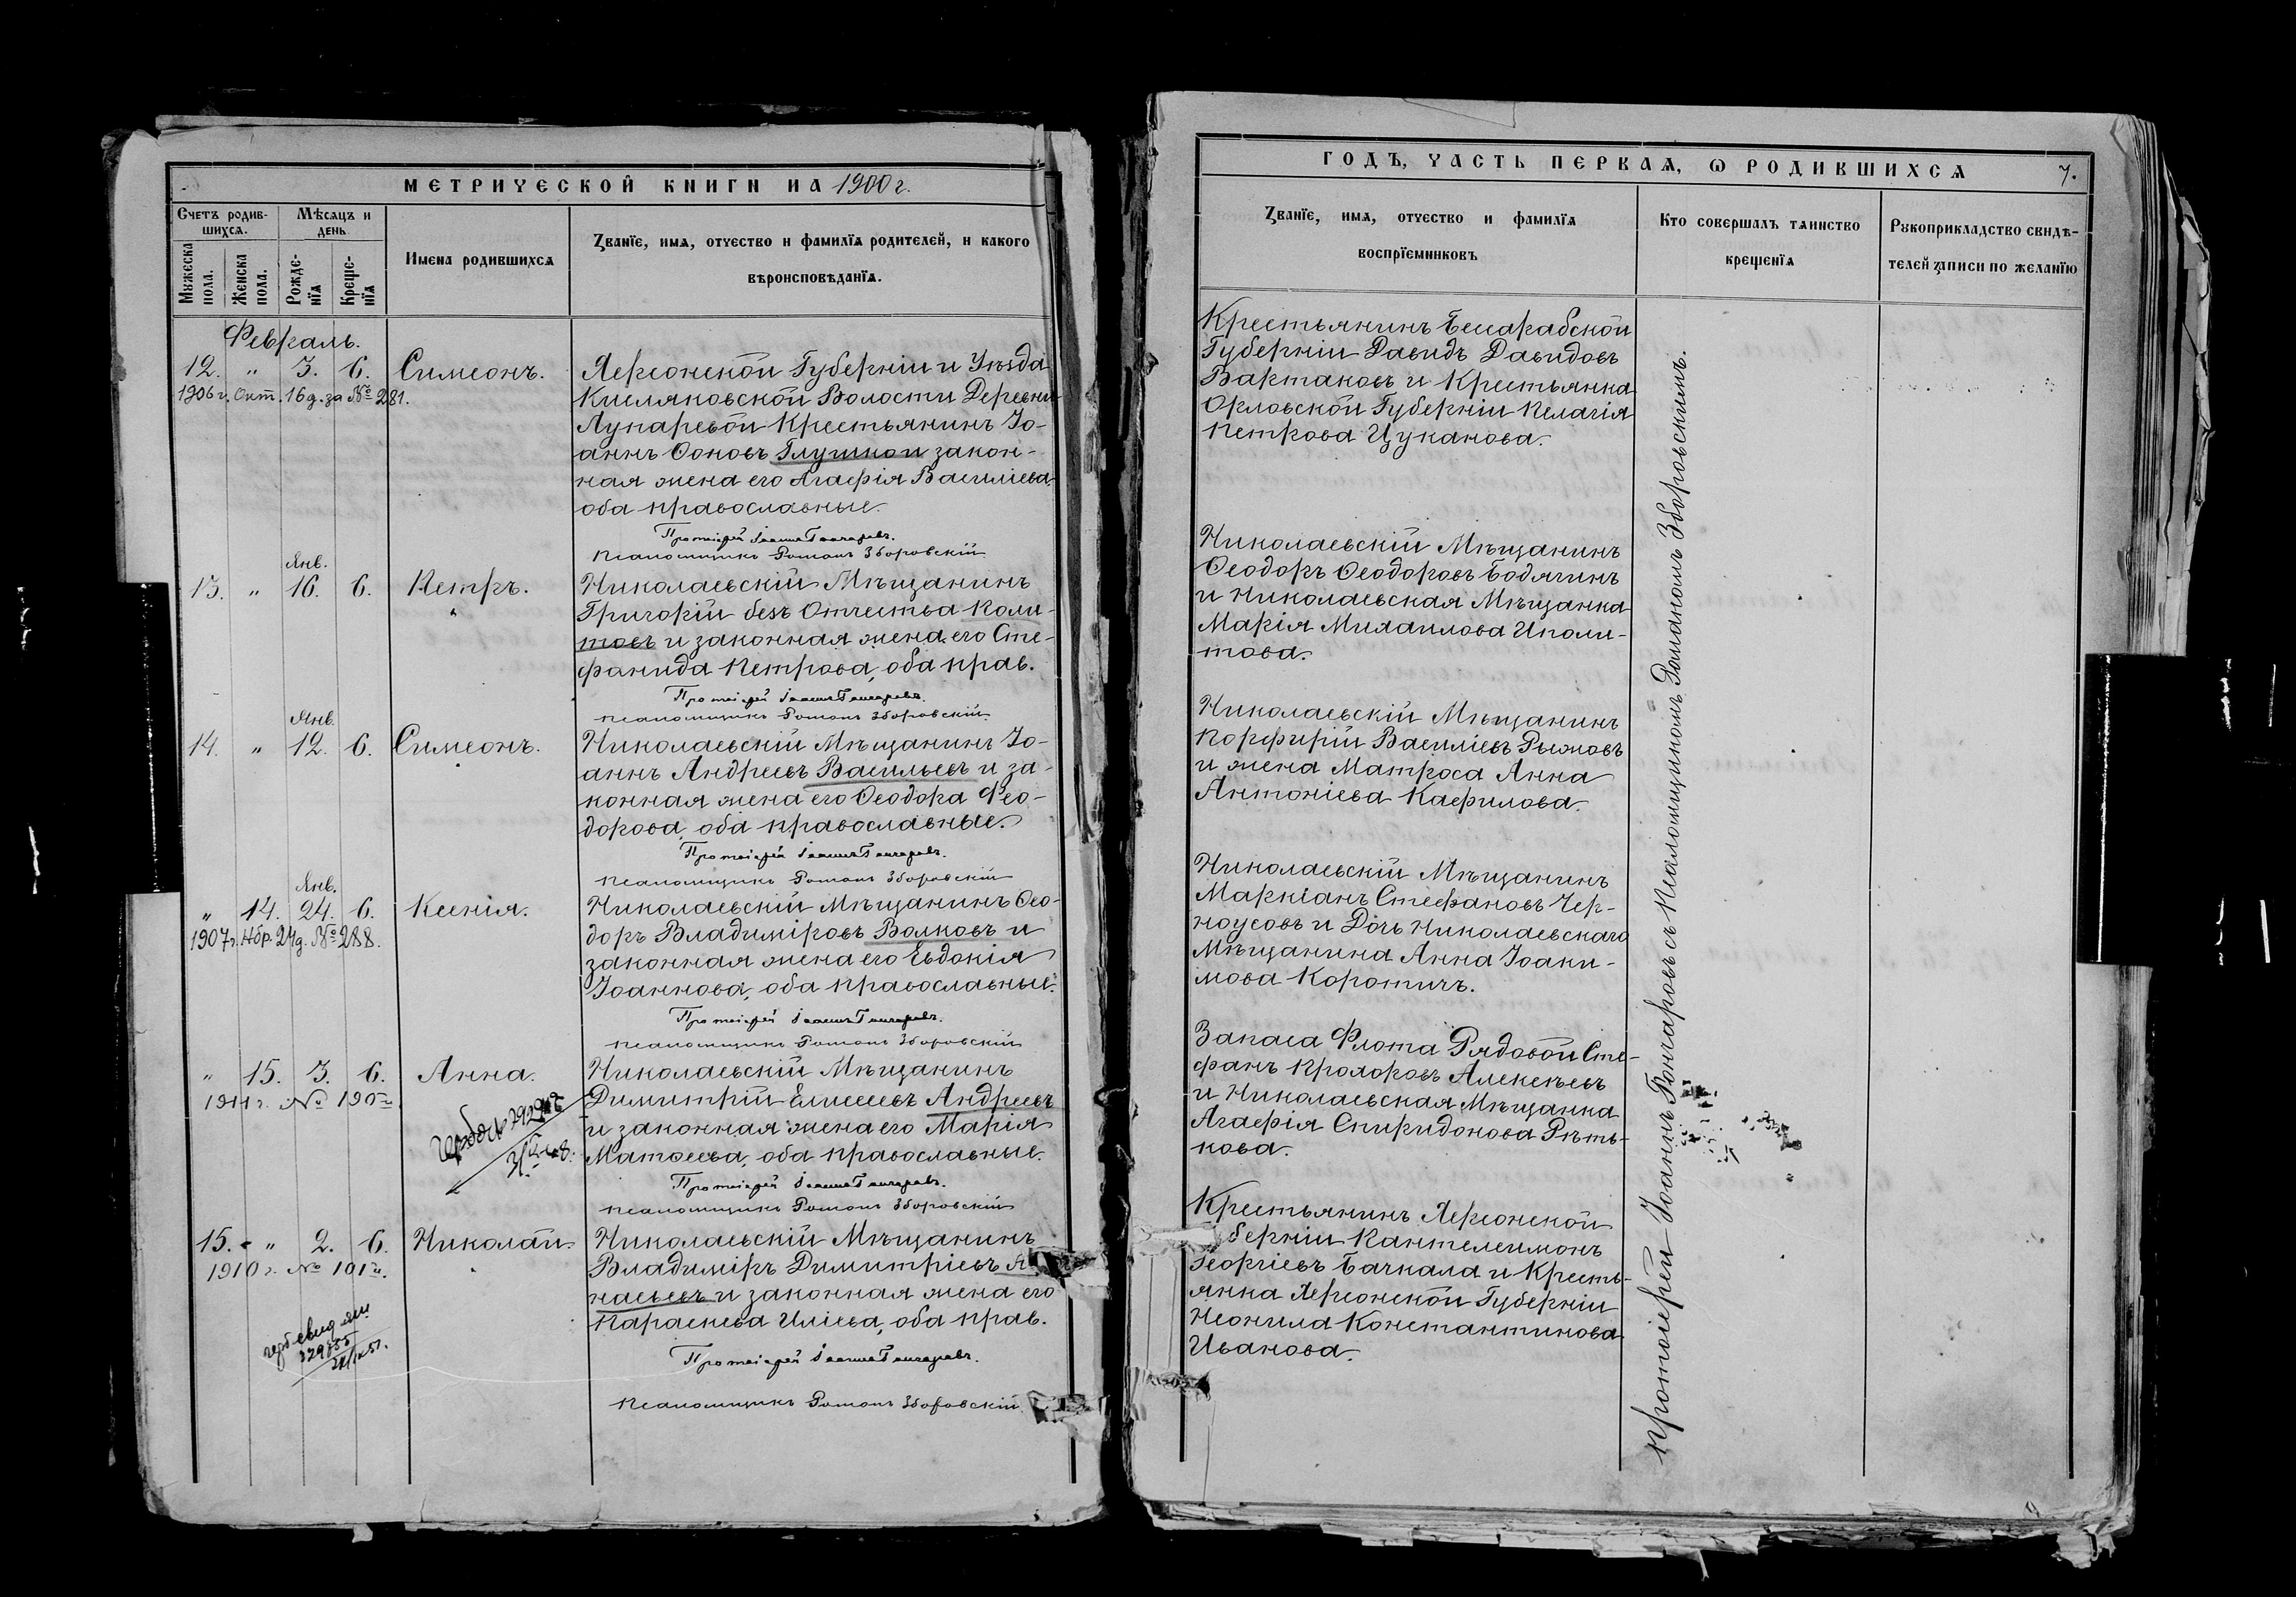 МЕТРИЧЕСКОЙ КНИГИ НА 1900 г.
Счетъ родив-
шихся.
Мѣсяцъ и
день
Мужеска
пола.
Женска
пола.
Рожде-
нїя
Креще-
нїя
Имена родившихся
Званїе, имя, отчество и фамилїя родителей, и какого
вѣроисповѣданїя.
Февраль.
12. " 3. 6. Симеонъ.
1906 г. Окт. 16 д. за № 281.
Херсонской Губерніи и Уѣзда
Кисляковской Волости Деревни
Лупаревой Крестьянинъ Іо-
аннъ Ѳоковъ Глушко и закон-
ная жена его Агафія Василіева,
оба православные.
Протоіерей Іоаннъ Гончаровъ.
Псаломщикъ Романъ Зборовскій
Янв.
13. " 16. 6. Петръ.
Николаевскій Мѣщанинъ
Григорій безъ Отчества Поли-
товъ и законная жена его Сте-
фанида Петрова, оба прав.
Протоіерей Іоаннъ Гончаровъ.
Псаломщикъ Романъ Зборовскій
Янв.
14. " 12. 6. Симеонъ.
Николаевскій Мѣщанинъ Іо-
аннъ Андреевъ Васильевъ и за-
конная жена его Ѳеодора Фео-
дорова, оба православные.
Протоіерей Іоаннъ Гончаровъ.
Псаломщикъ Романъ Зборовскій
Янв.
" 14. 24. 6. Ксенія.
1907 г. Нбр. 24 д. № 288.
Николаевскій Мѣщанинъ Ѳео-
доръ Владиміровъ Волковъ и
законная жена его Евдокія
Іоаннова, оба православные.
Протоіерей Іоаннъ Гончаровъ.
Псаломщикъ Романъ Зборовскій
" 15. 3. 6. Анна.
1911 г. №
Николаевскій Мѣщанинъ
Димитрій Елисеевъ Андреевъ
и законная жена его Марія
Матѳеева, оба православные.
Протоіерей Іоаннъ Гончаровъ.
Псаломщикъ Романъ Зборовскій
15. " 2. 6. Николай.
1910 г. № 101
Николаевскій Мѣщанинъ
Владиміръ Димитріевъ
насьевъ и законная жена его
Параскева Иліева, оба прав.
Протоіерей Іоаннъ Гончаровъ.
Псаломщикъ Романъ Зборовскій
ГОДЪ, ЧАСТЬ ПЕРВАЯ, Ѡ РОДИВШИХСЯ 7.
Званїе, имя, отчество и фамилїя
воспрїемниковъ
Кто совершалъ таинство
крещенїя
Рукоприкладство свидѣ-
телей записи по желанїю
Крестьянинъ Бессарабской
Губерніи Давидъ Давидовъ
Вартановъ и Крестьянка
Орловской Губерніи Пелагія
Петрова Цуканова.
Николаевскій Мѣщанинъ
Ѳеодоръ Ѳеодоровъ Бодягинъ
и Николаевская Мѣщанка
Марія Михаилова Иполи-
това.
Николаевскій Мѣщанинъ
Порфирій Василіевъ Рыжовъ
и жена Матроса Анна
Антоніева Кафилова.
Николаевскій Мѣщанинъ
Маркіанъ Стефановъ Чер-
ноусовъ и Дочь Николаевскаго
Мѣщанина Анна Іоаки-
мова Коротичъ.
Запаса Флота Рядовой Сте-
фанъ Прохоровъ Алексѣевъ
и Николаевская Мѣщанка
Агафія Спиридонова Рѣть-
кова.
Крестьянинъ Херсонской
берніи Пантелеимонъ
Георгіевъ Бачкала и Кресть-
янка Херсонской Губерніи
Неонила Константинова
Иванова.
Протоіерей Іоаннъ Гончаровъ съ Псаломщикомъ Романомъ Зборовскимъ.